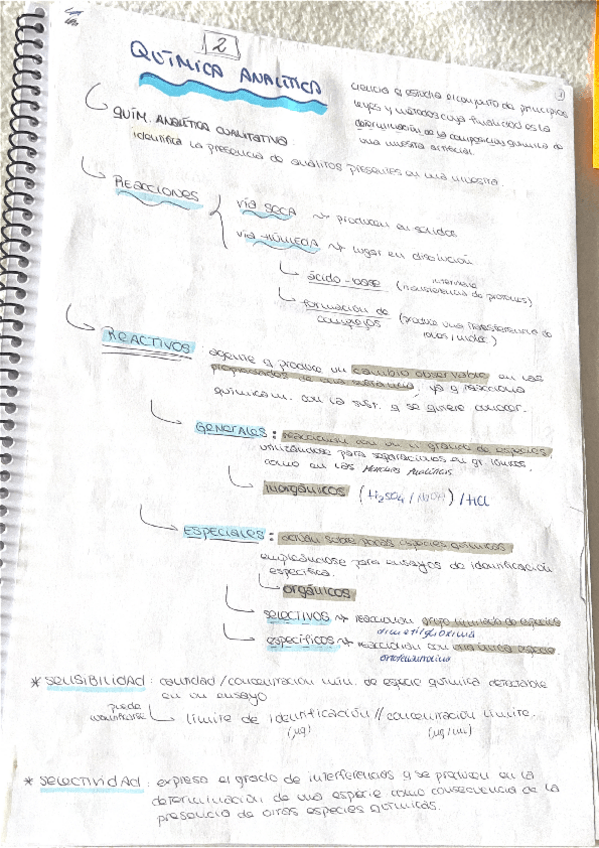 2
QUÍMICA ANALÍTICA
ciencia q estudia el conjunto de principios
leyes y métodos cuya finalidad es la
determinación de la composición química de
una muestra
QUÍM. ANALÍTICA CUALITATIVA.
identifica la presencia de analitos presentes en una muestra.
REACCIONES
vía SECA → producen en sólidos
vía HÚMEDA → lugar en disolución
ácido-base (transferencia de protones)
formación de complejos (produce una transferencia de
iones / moléc)
REACTIVOS
agente q produce un cambio observable en las
propiedades de una sustancia, ya q reacciona
químicam. con la sust. q se quiere conocer.
GENERALES: reaccionan con un nº grande de especies,
utilizándose para separaciones en gr. iónicos
como en las Marchas Analíticas
inorgánicos (H₂SO₄ / NaOH) / HCl
ESPECIALES: actúan sobre pocas especies químicas
empleándose para ensayos de identificación
específica.
orgánicos
SELECTIVOS → reaccionan grupo limitado de especies
dimetilglioxima
específicos → reaccionan con una única especie
* SENSIBILIDAD: cantidad/concentración mín. de especie química detectable
en un ensayo
puede
límite de identificación // concentración límite.
(µg) (µg/mL)
* SELECTIVIDAD: expresa el grado de interferencias q se producen en la
determinación de una especie como consecuencia de la
presencia de otras especies químicas.